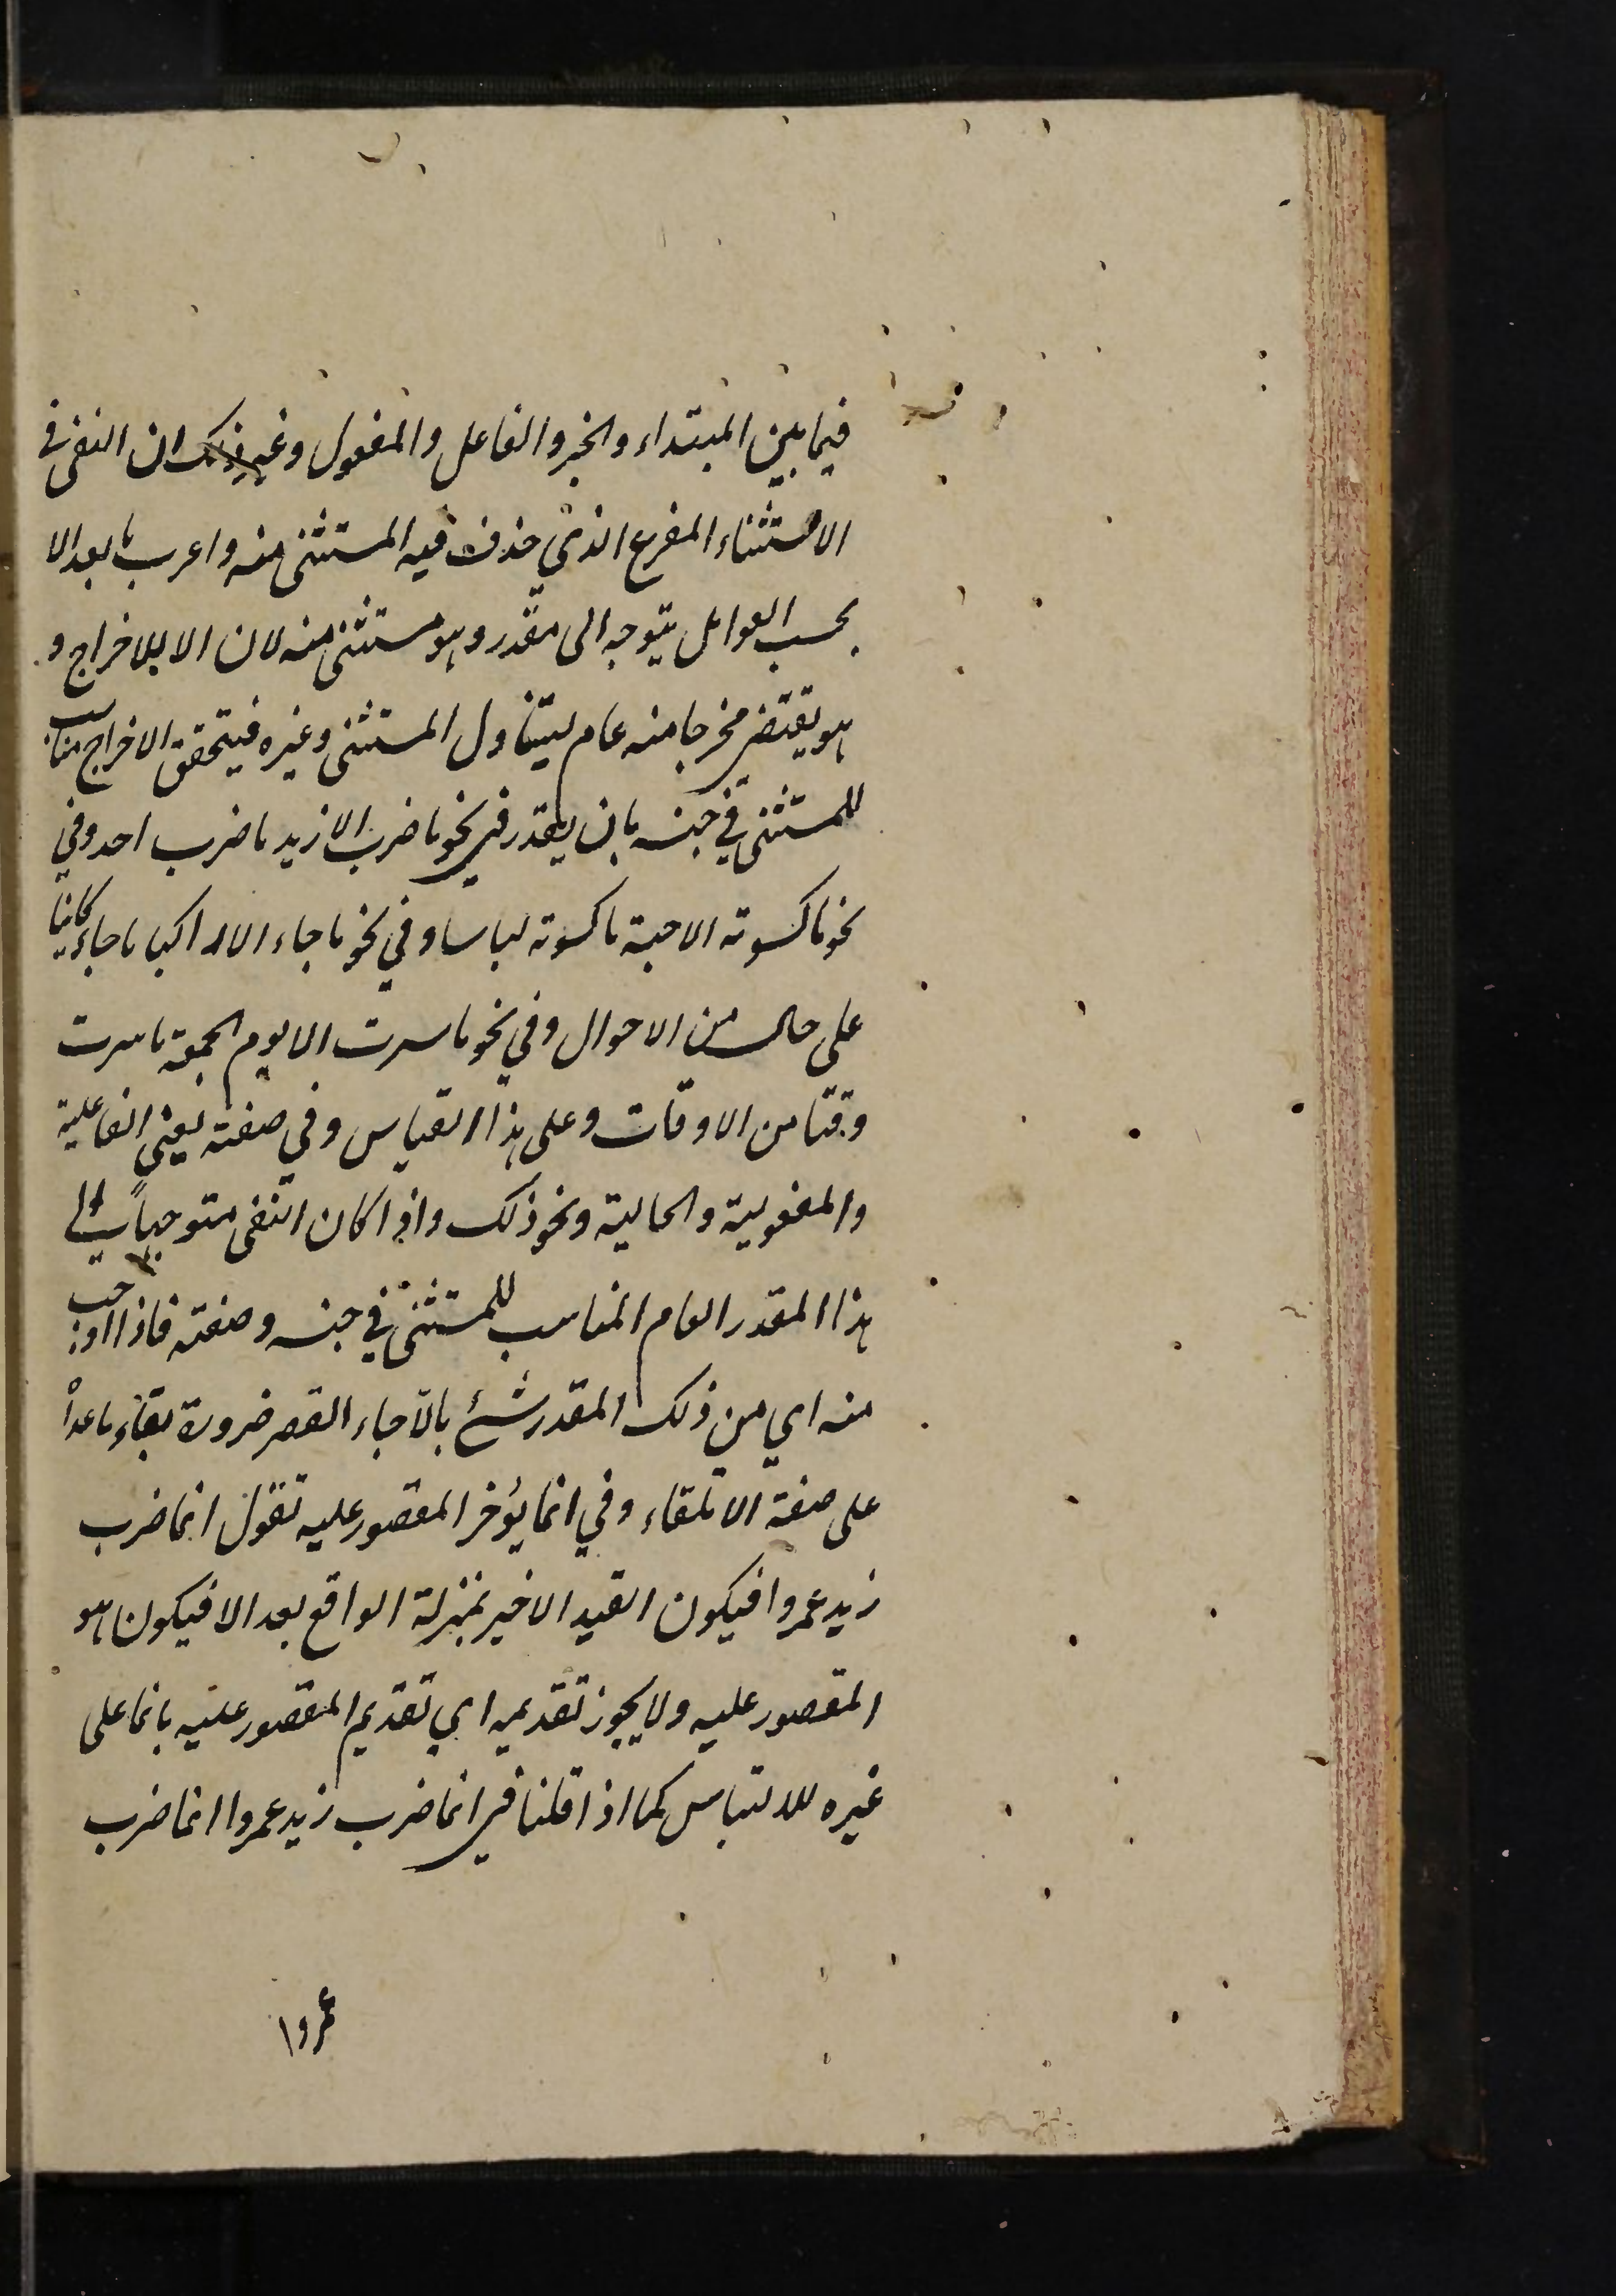 فيما بين المبتداء والخبر والفاعل والمفعول وغير ذلك ان النفى فى
الاستثناء المفرع الذي حذف فيه المستثنى منه واعرب ما بعد الا
بحسب العوامل يتوجه الى مقدر وهو مستثنى منه لان الا للاخراج و
هو يقتضى مخرجا منه عام ليتناول المستثنى وغيره فيتحقق الاخراج مناسب
للمستثنى في جنسه بان يقدر في نحو ما ضرب الا زيد ما ضرب احد وفي
نحو ما كسوته الا جبة ما كسوته لباسا وفي نحو ما جاء الا راكبا ما جاء كائنا
على حال من الاحوال وفي نحو ما سرت الا يوم الجمعة ما سرت
وقتا من الاوقات وعلى هذا القياس وفي صفته يعني الفاعلية
والمفعولية والحالية ونحو ذلك واذا كان النفى متوجها الى
هذا المقدر العام المناسب للمستثنى في جنسه وصفته فاذا اوجب
منه اي من ذلك المقدر شئ بالا جاء القصر ضرورة بقاء ما عداه
على صفة الانتفاء وفي انما يؤخر المقصور عليه تقول انما ضرب
زيد عمروا فيكون القيد الاخير بمنزلة الواقع بعد الا فيكون هو
المقصور عليه ولا يجوز تقديمه اي تقديم المقصور عليه بانما على
غيره للالتباس كما اذا قلنا في انما ضرب زيد عمروا انما ضرب
عمروا